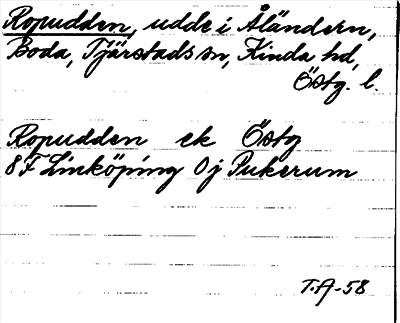 Ropudden, udde i Åländern,
Boda, Tjärstads sn, Kinda hd,
Östg. l.
Ropudden ek Östg
8 F Linköping Oj Pukerum
T.A-58